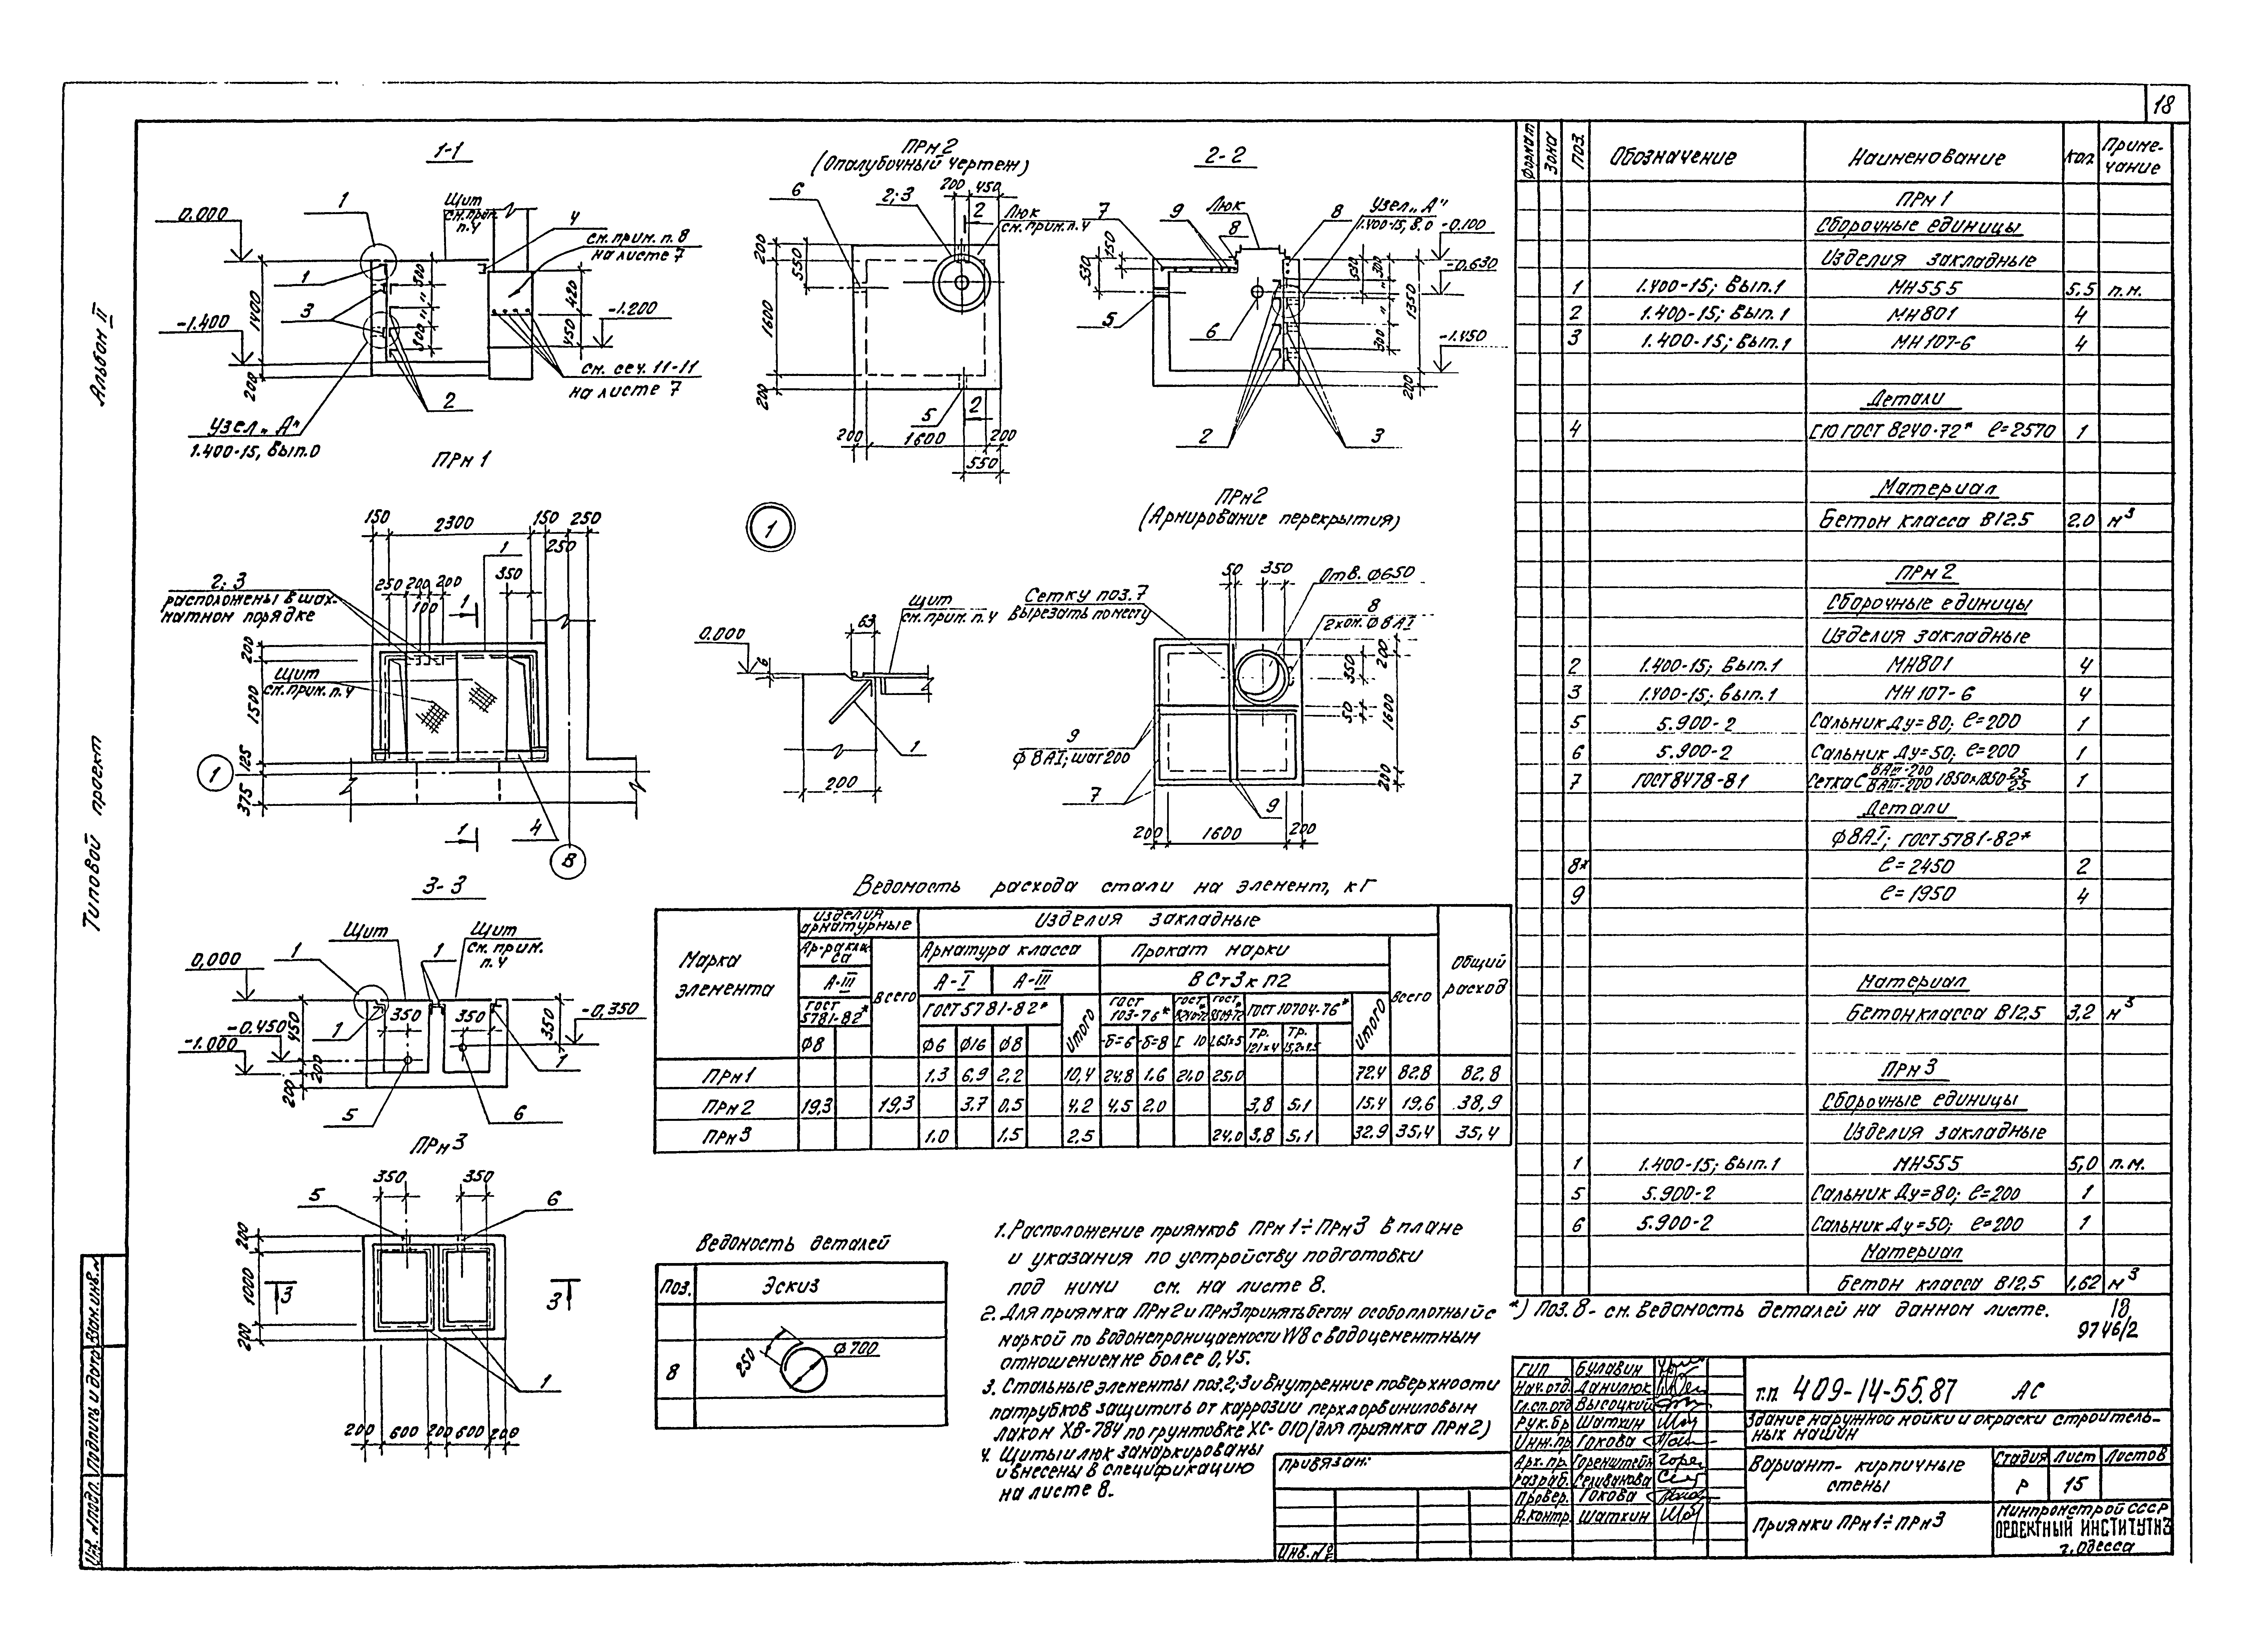 18
Альбом II
Типовой проект
1-1
0.000
1
Щит
см. прим.
п.4
4
см. прим. п. 8
на листе 7
1
3
1400
300
"
"
300
420
450
-1.400
-1.200
200
2
см. сеч. 11-11
на листе 7
Узел „А"
1.400-15, вып.0
ПРм 2
(Опалубочный чертеж)
6
2; 3
200
450
2
Люк
см. прим. п.4
200
550
1600
200
5
2
200
1600
200
550
2-2
7
9
Люк
8
8
Узел „А"
1.400-15, в.0
-0.100
150
530
530
300
"
"
300
1350
-0.630
5
6
-1.450
200
2
3
ПРм 1
150
2300
150
250
250
1
2; 3
расположены в шах-
матном порядке
250
200
200
100
1
350
200
Щит
см. прим. п.4
1500
125
375
1
1
4
В
1
0.000
6
63
Щит
см. прим. п.4
1
200
ПРм2
(Армирование перекрытия)
Сетку поз.7
вырезать по месту
50
350
Отв. ф650
8
2 кон. ф8АI
200
350
50
1600
200
9
ф8АI; шаг 200
7
9
200
1600
200
3-3
0,000
1
Щит
1
Щит
см. прим.
п.4
450
350
350
350
-0,350
-0.450
-1.000
1
1
200
200
5
6
ПРм3
350
350
5
6
200
1000
200
3
3
1
200
600
200
600
200
Ведомость расхода стали на элемент, кг
Марка
элемента
Изделия
арматурные
Изделия закладные
Общий
расход
Ар-ра клас-
са
Всего
Арматура класса
Прокат марки
Всего
А-III
А-I
А-III
ВСт3кп2
ГОСТ
5781-82*
ГОСТ 5781-82*
Итого
ГОСТ
103-76*
ГОСТ 10704-76*
Итого
ф8
ф6
ф16
ф8
-δ=6
-δ=8
[ 10
L63×5
Тр.
121×4
Тр.
ПРм1
1,3
6,9
2,2
10,4
24,8
1.6
21,0
25,0
72,4
82,8
82,8
ПРм2
19,3
19,3
3.7
0.5
4,2
4,5
2,0
3,8
5,1
15,4
19,6
38,9
ПРм3
1,0
1,5
2,5
24,0
3,8
5,1
32.9
35,4
35,4
Ведомость деталей
Поз.
Эскиз
8
250
ф700
1. Расположение приямков ПРм1÷ПРм3 в плане
и указания по устройству подготовки
под ними см. на листе 8.
2. Для приямка ПРм2 и ПРм3 принять бетон особо плотный с
маркой по водонепроницаемости W8 с водоцементным
отношением не более 0,45.
3. Стальные элементы поз.2;3 и внутренние поверхности
патрубков защитить от каррозии перхлорвиниловым
лаком ХВ-784 по грунтовке ХС-010 (для приямка ПРм2)
4. Щиты и люк замаркированы
и внесены в спецификацию
на листе 8.
Формат
Зона
Поз.
Обозначение
Наименование
Кол.
Приме-
чание
ПРм1
Сборочные единицы
Изделия закладные
1
1.400-15; вып.1
МН555
5,5
п.м.
2
1.400-15; вып.1
МН801
4
3
1.400-15; вып.1
МН107-6
4
Детали
4
[10 ГОСТ 8240-72* ℓ=2570
1
Материал
Бетон класса В12.5
2,0
м³
ПРм2
Сборочные единицы
Изделия закладные
2
1.400-15; вып.1
МН801
4
3
1.400-15; вып.1
МН107-6
4
5
5.900-2
Сальник Ду=80; ℓ=200
1
6
5.900-2
Сальник Ду=50; ℓ=200
1
7
ГОСТ 8478-81
Сетка С 8АIII-200/8АIII-200 1850×1850 25/25
1
Детали
ф8АI; ГОСТ 5781-82*
8*
ℓ=2450
2
9
ℓ=1950
4
Материал
Бетон класса В12,5
3,2
м³
ПРм3
Сборочные единицы
Изделия закладные
1
1.400-15; вып.1
МН555
5,0
п.м.
5
5.900-2
Сальник Ду=80; ℓ=200
1
6
5.900-2
Сальник Ду=50; ℓ=200
1
Материал
Бетон класса В12,5
1,62
м³
*) Поз. 8 - см. ведомость деталей на данном листе.
18
9746/2
ГИП Булавин
Нач.отд. Данилюк
Гл.сп.отд Высоцкий
Рук.бр Шаткин
Инж.пр. Гокова
Арх.пр. Горенштейн
Разраб. Селиванова
Провер. Гокова
Н.контр. Шаткин
т.п. 409-14-55.87 АС
Здание наружной мойки и окраски строитель-
ных машин
Вариант- кирпичные
стены
Стадия
Лист
Листов
Р
15
Приямки ПРм1÷ПРм3
Минпромстрой СССР
г. Одесса
Привязан:
Инв. №
Инв. № подл.
Подпись и дата
Взам. инв. №